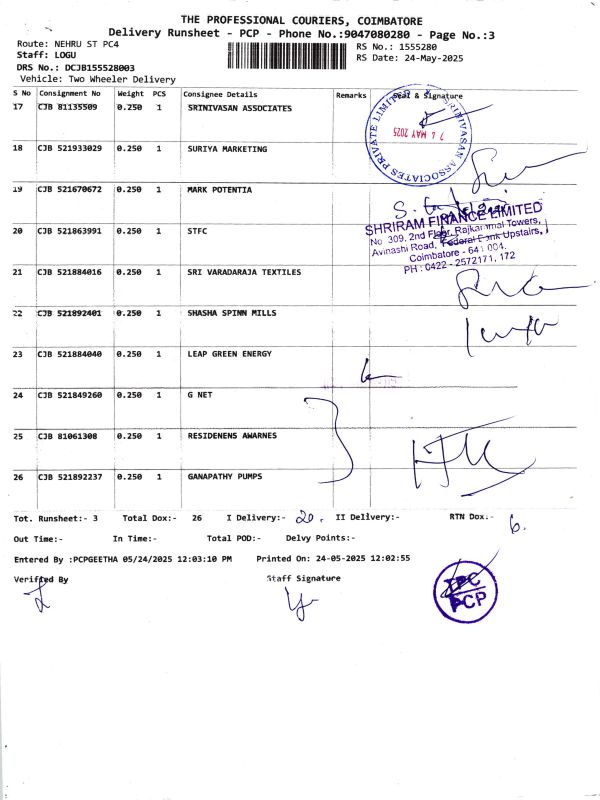 THE PROFESSIONAL COURIERS, COIMBATORE
Delivery Runsheet - PCP - Phone No.:9047080280 - Page No.:3
Route: NEHRU ST PC4
Staff: LOGU
DRS No.: DCJB155528003
Vehicle: Two Wheeler Delivery
RS No.: 1555280
RS Date: 24-May-2025
S No Consignment No Weight PCS Consignee Details Remarks Seal & Signature
17 CJB 81135509 0.250 1 SRINIVASAN ASSOCIATES
SRINIVASAN ASSOCIATES PRIVATE LIMITED
MAY 2025
18 CJB 521933029 0.250 1 SURIYA MARKETING
19 CJB 521670672 0.250 1 MARK POTENTIA
20 CJB 521863991 0.250 1 STFC
SHRIRAM FINANCE LIMITED
No 309, 2nd Floor, Rajkammal Towers,
Avinashi Road, Federal Bank Upstairs,
Coimbatore - 641 004.
PH : 0422 - 2572171, 172
21 CJB 521884016 0.250 1 SRI VARADARAJA TEXTILES
22 CJB 521892401 0.250 1 SHASHA SPINN MILLS
23 CJB 521884040 0.250 1 LEAP GREEN ENERGY
24 CJB 521849260 0.250 1 G NET
25 CJB 81061308 0.250 1 RESIDENENS AWARNES
26 CJB 521892237 0.250 1 GANAPATHY PUMPS
Tot. Runsheet:- 3 Total Dox:- 26 I Delivery:- 20. II Delivery:- RTN Dox:- 6.
Out Time:- In Time:- Total POD:- Delvy Points:-
Entered By :PCPGEETHA 05/24/2025 12:03:10 PM Printed On: 24-05-2025 12:02:55
Verified By Staff Signature
TPC
PCP